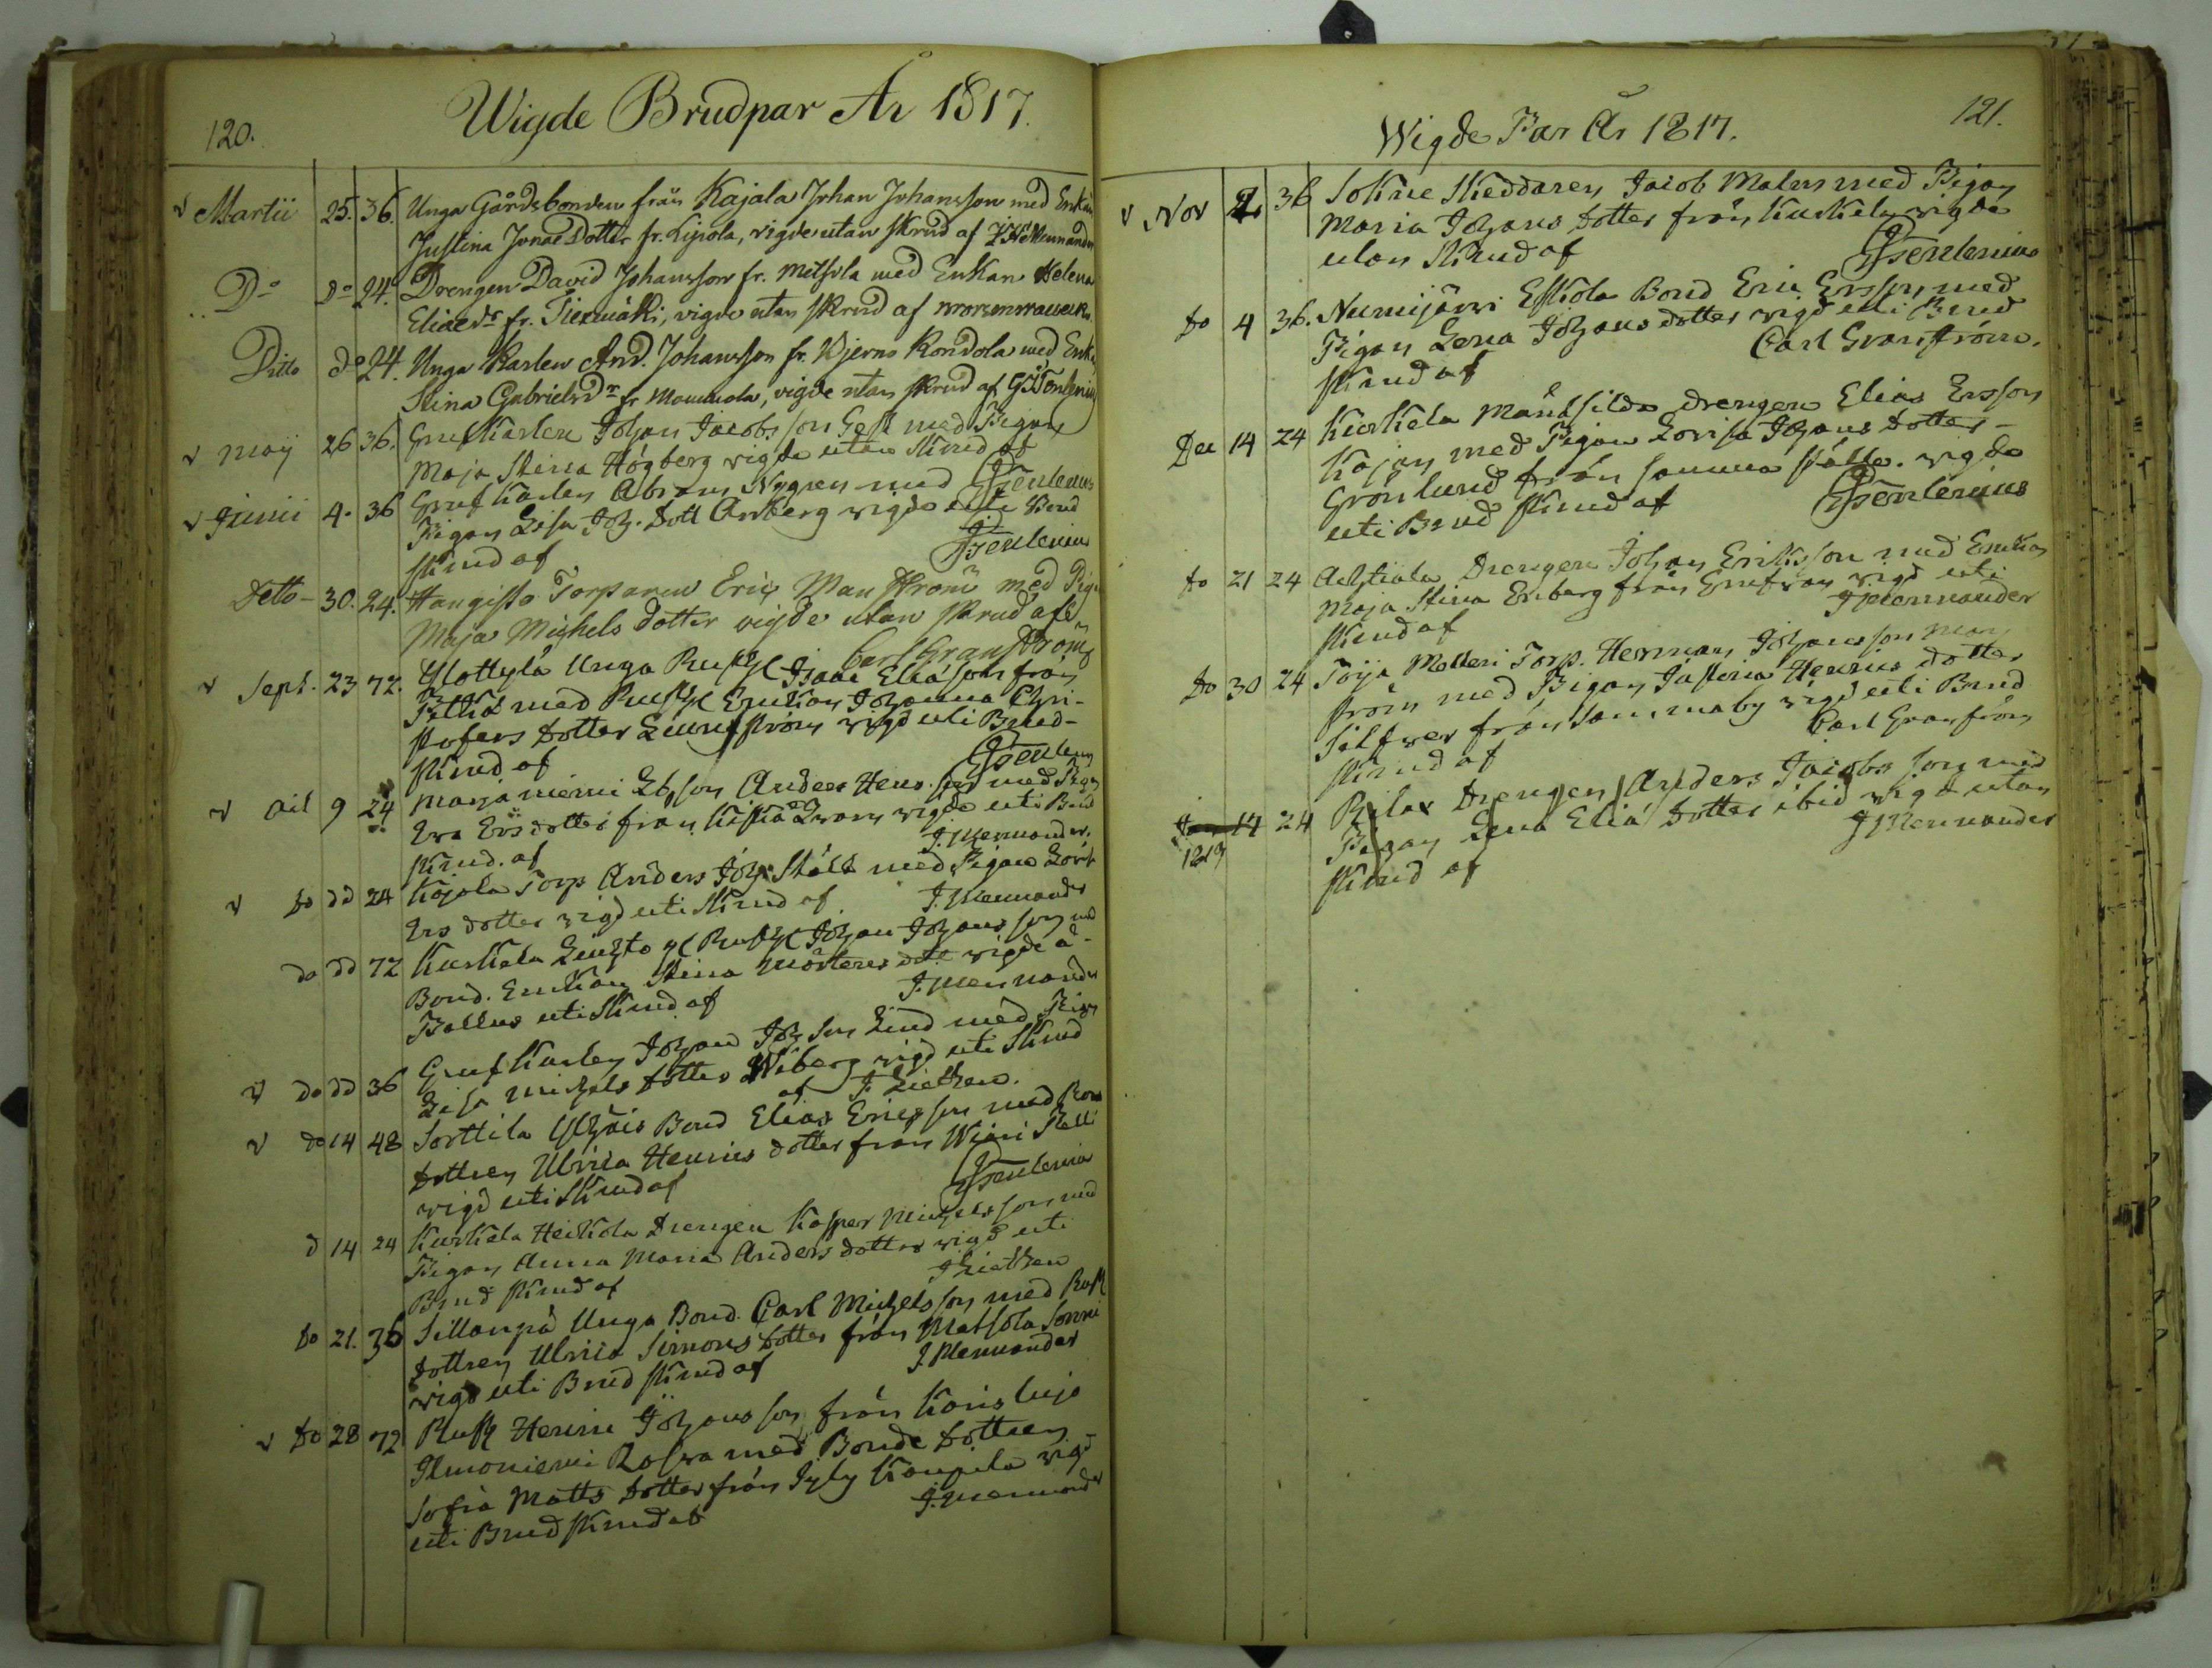 120.
Wigde Brudpar År 1817.
v Martii 25. 36. Unga Gårdsbonden från Kajala Johan Johansson med Enkan
Justina Jonae Dotter fr. Lipola, vigde utan skrud af
Do Do 24. Drengen David Johansson fr. Mettola med Enkan Helena
Eliaedr fr. vigde utan skrud af
Ditto do 24. Unga Karlen And. Johansson fr. Kjerno Rondola med Enk.
Stina Gabrielsdr fr Mommola, vigde utan skrud af
v Maij 26 36. Gruf Karlen Johan Jacobsson Gest med Pigan
Maja Stina Högberg vigde utan skrud af
v Junii 4. 36 Gruf Karlen Abram Nygren med Tenlenius
Pigan Lisa Joh. dott Arnberg vigde uti Brud
skrud af Tenlenius
Detto 30. 24. Torparen Eric Manström med Pig.
Maja Michels dotter vigde utan skrud af
Carl Granström
v Sept. 23 72. Ylottylä Unga Rusth Isaac Eliasson från
med Rusth Enkan Johanna Chri-
stofers dotter vigd uti Brud-
skrud af Tenlenius
v Oct 9 24 Marjaniemi son Anders Henr. son med Pigan
Eva Ers dotter från vigde uti Brud
skrud. af J. Mennander.
v do dd 24 Kojola Torp Anders Joh. Ståhl med Pigan
Ers dotter vigd uti skrud af J. Mennander
do dd 72 Kurkela Rusth Johan Johansson med
Bond. Enkan Stina Mårtens dott vigde å
Ballus uti skrud af J. Mennander
v do dd 36 Grufkarlen Johan Joh son Lind med Pigan
Lisa Michels dotter Wiberg vigd uti skrud
af J. Liethen.
v do 14 48 Sorttila Bond Elias Ericsson med Bon
dottren Ulrica Henrics dotter från
vigd uti skrud af Tenlenius
d 14 24 Kurkela Heikola Drengen Kasper Michelsson med
Pigan Anna Maria Anders dotter vigd uti
Brud skrud af J Liethen
do 21. 36 Sillanpä Unga Bond. Carl Michelsson med Rusth
dottren Ulrica Simons dotter från Mattola
vigd uti Brud skrud af J. Mennander
v do 28 72 Rusth Henric Johansson från Karislojo
Ilmoniemi med Bonde dottren
Sofia Matts dotter från Kaupila vigd
uti Brud skrud af J. Mennander
121.
Wigde Par År 1817.
v Nov 2 36 Sokne Skeddaren Jacob Malm med Pigan
Maria Johans dotter från Kurkela vigde
utan skrud af Tenlenius
do 4 36. Numijärvi Eskola Bond Eric Ersson med
Pigan Lena Johans dotter vigd uti Brud
skrud af Carl Granström.
Dec 14 24 Kurkela drengen Elias Ersson
Kajan med Pigan Lovisa Johans dotter
Grönlund från samma ställe. vigde
uti Brud skrud af Tenlenius
do 21 24 Drengen Johan Eriksson med Enkan
Maja Stina Enberg från vigd uti
skrud af J Mennander
do 30 24 Torp. Herman Johansson Man
ström med Pigan Justina Henrics dotter
Silfver från samma by vigd uti Brud
skrud af Carl Granström
14 24 Drengen Anders Jacobsson med
1819 Pigan Lena Elia dotter ibid vigd utan
skrud af J Mennander